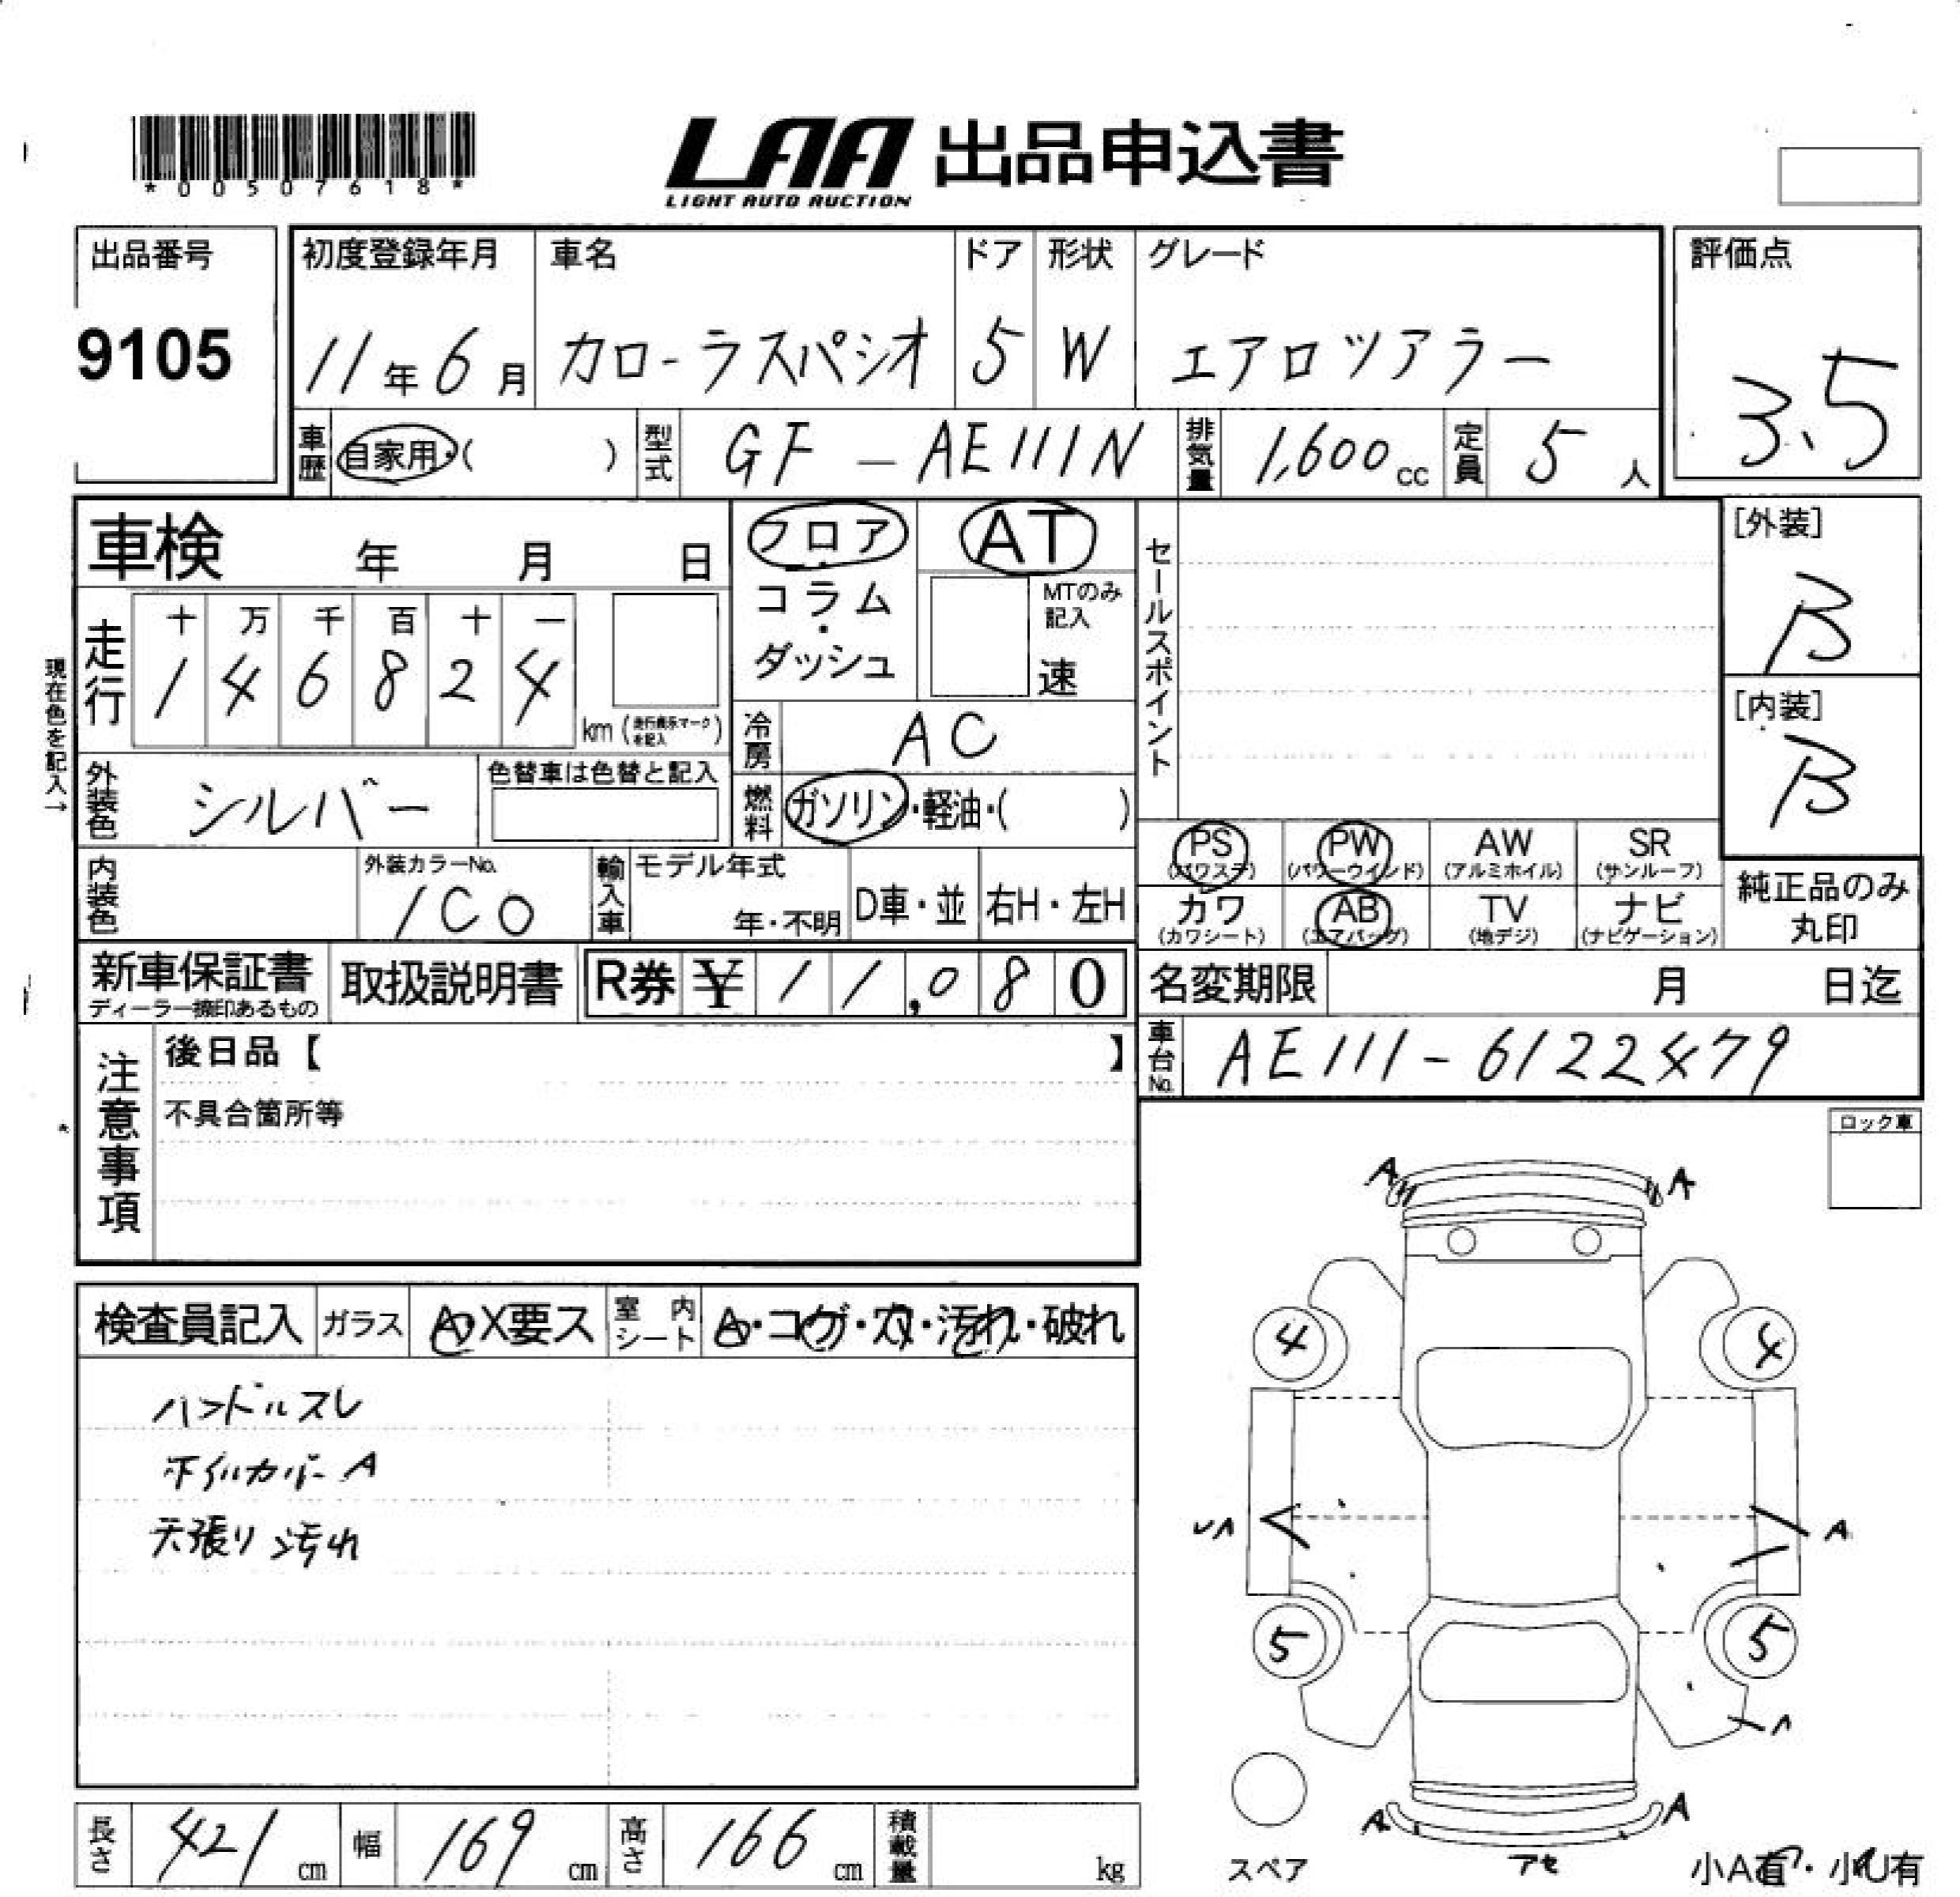 *00507618*
LAA 出品申込書
LIGHT AUTO AUCTION
出品番号 初度登録年月 車名 ドア 形状 グレード 評価点
9105 11年6月 カローラスパシオ 5 W エアロツアラー 3.5
車歴 自家用・( ) 型式 GF-AE111N 排気量 1,600cc 定員 5人
車検 年 月 日 フロア・コラム・ダッシュ AT
MTのみ記入 速
セールスポイント
[外装] B
[内装] B
現在色を記入→
走行 十万千百十一
146824 km(走行表示マークを記入)
冷房 AC
外装色 シルバー 色替車は色替と記入
燃料 ガソリン・軽油・( )
PS(パワステ) PW(パワーウインド) AW(アルミホイル) SR(サンルーフ)
カワ(カワシート) AB(エアバッグ) TV(地デジ) ナビ(ナビゲーション)
純正品のみ丸印
内装色 外装カラーNo. 1C0 輸入車 モデル年式 年・不明 D車・並 右H・左H
新車保証書 ディーラー捺印あるもの 取扱説明書 R券 ¥11,080 名変期限 月 日迄
車台No. AE111-6122479
注意事項 後日品【 】
不具合箇所等
ロック車
A A
検査員記入 ガラス A・X要ス 室内シート A・コゲ・穴・汚れ・破れ
ハンドルスレ
ホイルカバーA
天張り汚れ
4 4
A
5 5
A A
スペア アセ 小A有・小U有
長さ 421cm 幅 169cm 高さ 166cm 積載量 kg